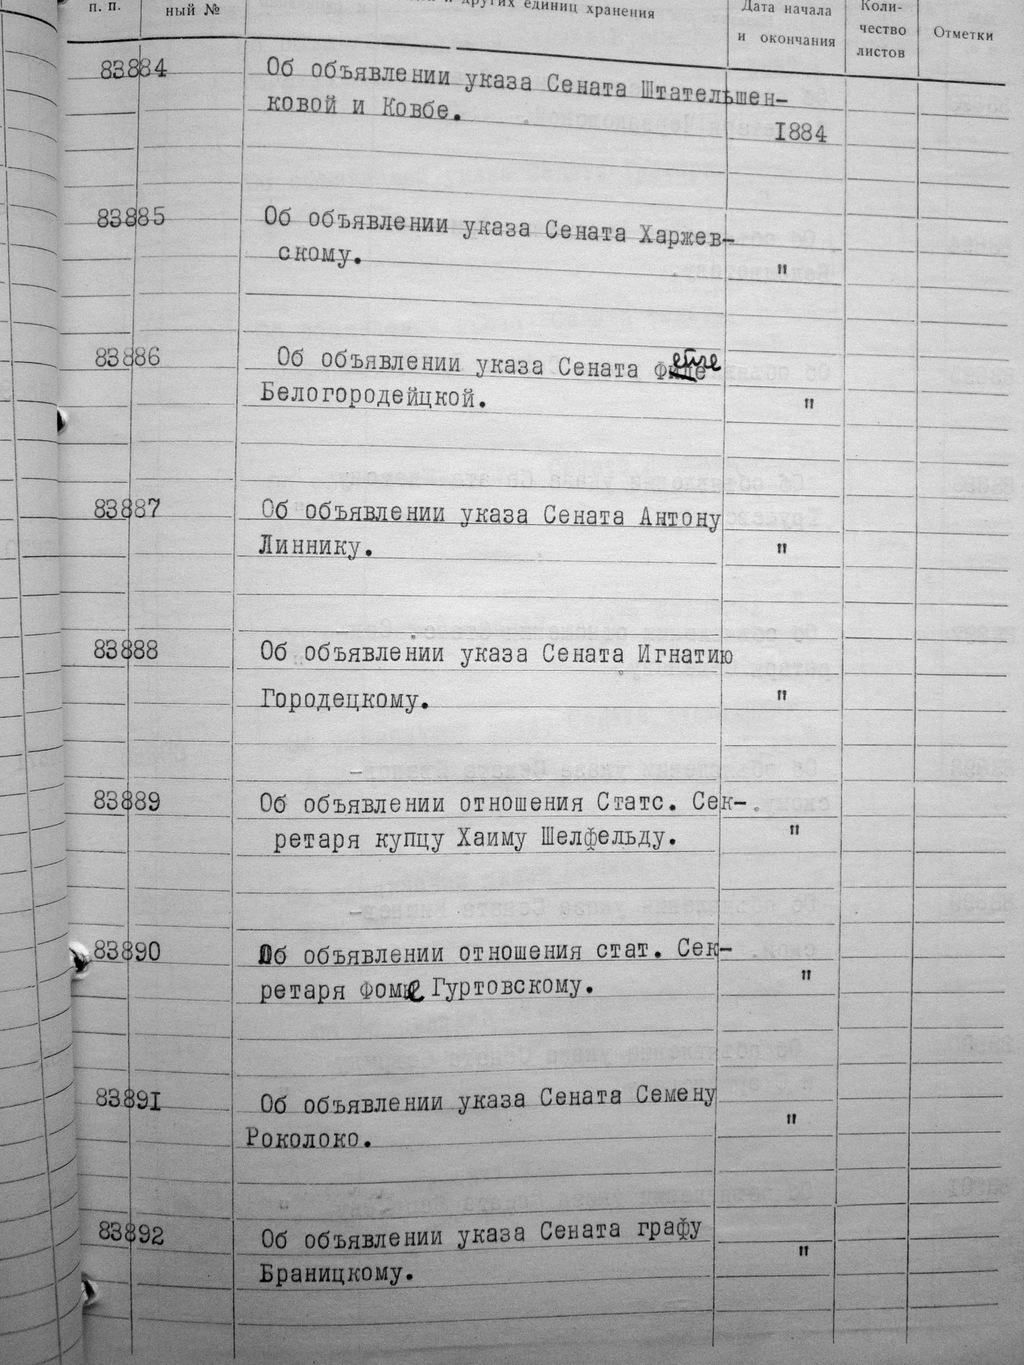 п. п. ный № и других единиц хранения Дата начала и окончания Коли-чество листов Отметки
83884 Об объявлении указа Сената Штательшен-
ковой и Ковбе. 1884
83885 Об объявлении указа Сената Харжев-
скому. "
83886 Об объявлении указа Сената
Белогородейцкой. "
83887 Об объявлении указа Сената Антону
Линнику. "
83888 Об объявлении указа Сената Игнатию
Городецкому. "
83889 Об объявлении отношения Статс. Сек-
ретаря купцу Хаиму Шелфельду. "
83890 Об объявлении отношения стат. Сек-
ретаря Фоме Гуртовскому. "
83891 Об объявлении указа Сената Семену
Роколоко. "
83892 Об объявлении указа Сената графу
Браницкому. "